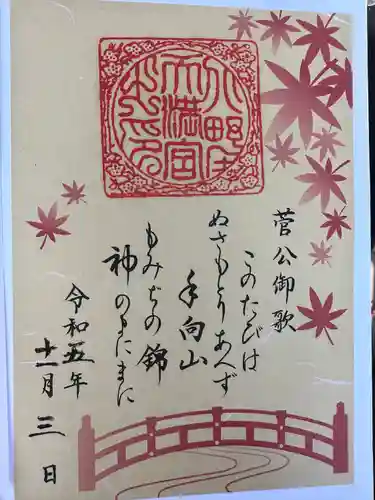 天満宮
菅公御歌
このたびは
ぬさもとりあへず
手向山
もみぢの錦
神のまにまに
令和五年
十一月三日